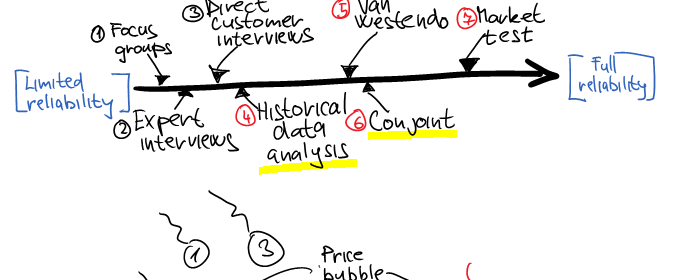 ③ Direct
customer
interviews
⑤ Van
Westendo
⑦ Market
test
① Focus
groups
[Limited
reliability]
[Full
reliability]
② Expert
interviews
④ Historical
data
analysis
⑥ Conjoint
① ③
Price
bubble